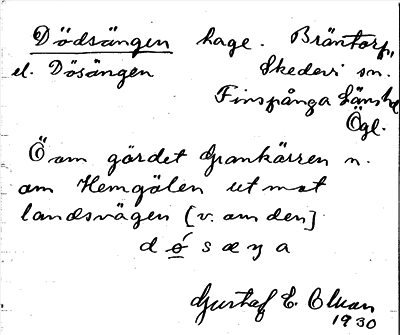 Dödsängen hage. Bräntorp,
el. Dösängen Skedevi sn.
Finspånga Länshd
Ögl.
Ö om gärdet Grankärren n.
om Hemgölen ut mot
landsvägen [v. om den]
dösæŋa
Gustaf E. Olsson
1930